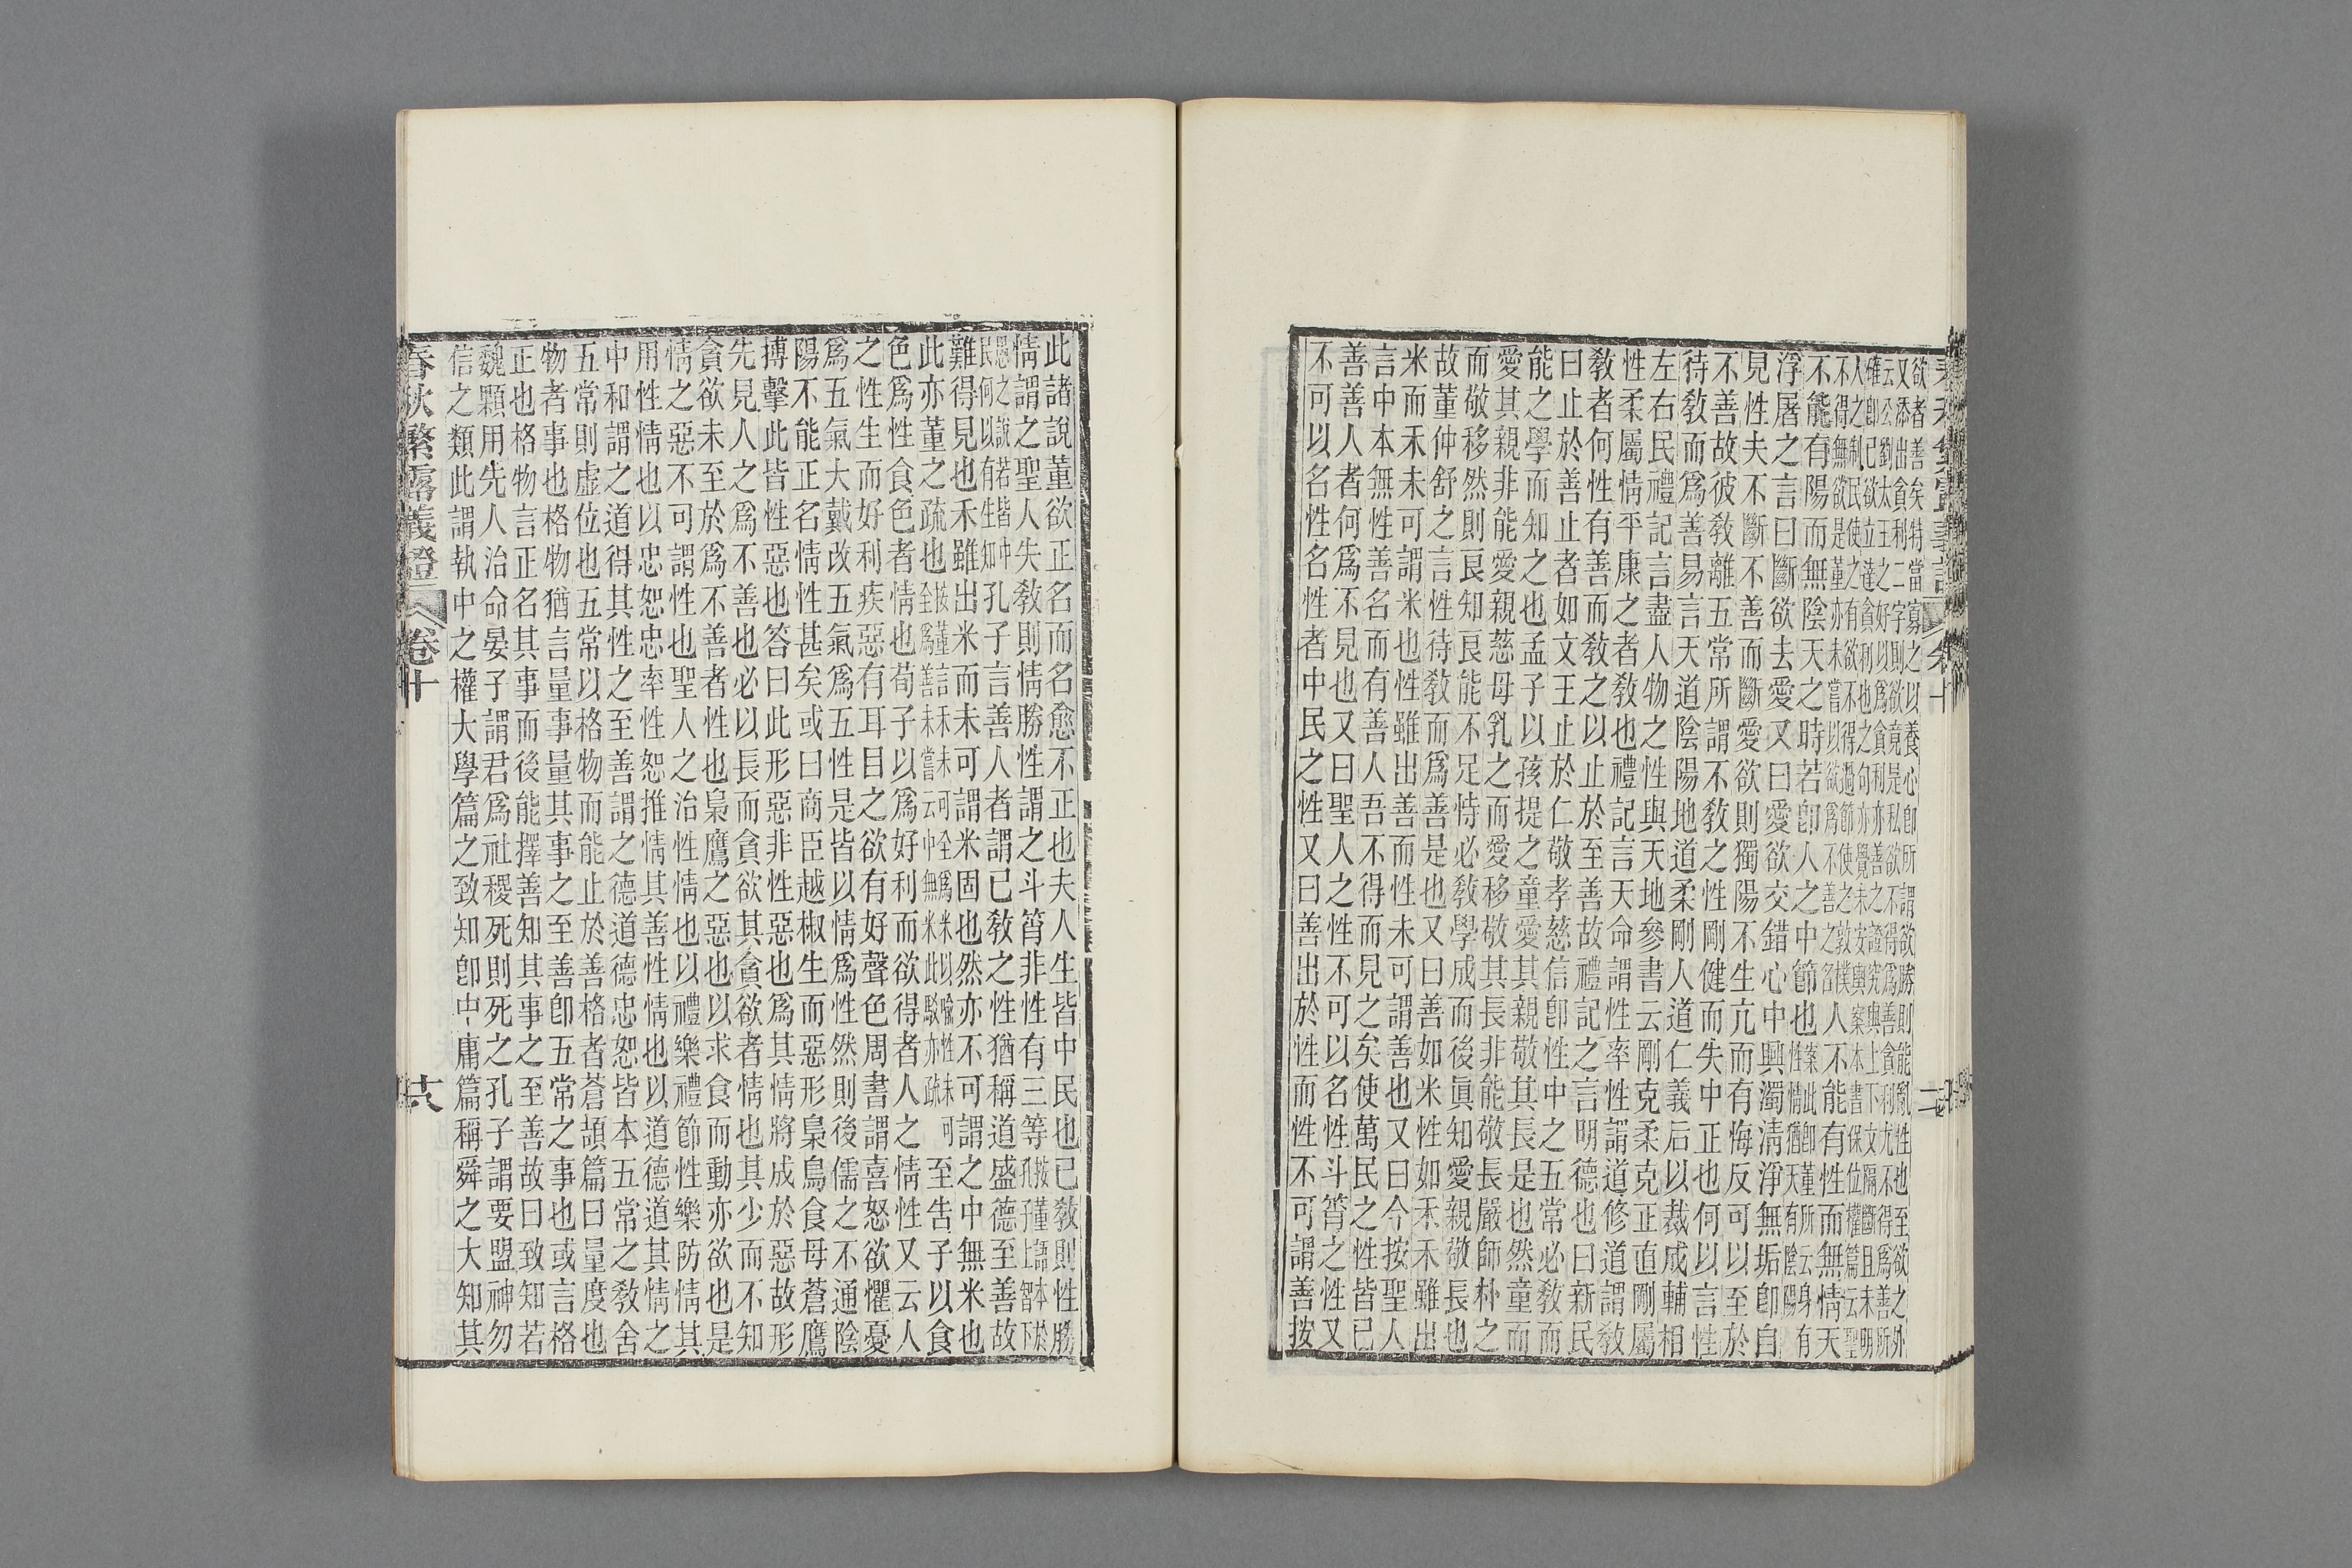 欲者善矣特當寡之以養心卽所謂欲勝則能亂性也至欲之外
又添出貪利二字則欲竟是私欲不得爲善貪利尤不得爲善所
云公劉太王之好以爲貪利亦善之證究與上下文隔斷且未明
雖卽已欲立達貪利也之句亦覺未安輿案本書保位權篇云聖
人之制民使之有欲不得過節使之敦樸
不得無欲是董亦未嘗以欲爲不善之名人不能有性而無情天
不能有陽而無陰天之時若卽人之中節也案此卽董所云身有性情猶天有陰陽
浮屠之言曰斷欲去愛又曰愛欲交錯心中興濁清淨無垢卽自
見性夫不斷不善而斷愛欲則獨陽不生亢而有悔反可以至於
不善故彼敎離五常所謂不敎之性剛健而失中正也何以言性
待敎而爲善易言天道陰陽地道柔剛人道仁義后以裁成輔相
左右民禮記言盡人物之性與天地參書云剛克柔克正直剛屬
性柔屬情平康之者敎也禮記言天命謂性率性謂道修道謂敎
敎者何性有善而敎之以止於至善故禮記之言明德也曰新民
曰止於善止者如文王止於仁敬孝慈信卽性中之五常必敎而
能之學而知之也孟子以孩提之童愛其親敬其長是也然童而
愛其親非能愛親慈母乳之而愛移敬其長非能敬長嚴師朴之
而敬移然則良知良能不足恃必敎學成而後眞知愛親敬長也
故董仲舒之言性待敎而爲善是也又曰善如米性如禾禾雖出
米而禾未可謂米也性雖出善而性未可謂善也又曰今按聖人
言中本無性善名而有善人吾不得而見之矣使萬民之性皆已
善善人者何爲不見也又曰聖人之性不可以名性斗筲之性又
不可以名性名性者中民之性又曰善出於性而性不可謂善按
此諸說董欲正名而名愈不正也夫人生皆中民也已敎則性勝
情謂之聖人失敎則情勝性謂之斗筲非性有三等按董語本於孔子上智下
愚之說若皆中民何以有生知孔子言善人者謂已敎之性猶稱道盛德至善故
難得見也禾雖出米而未可謂米固也然亦不可謂之中無米也
此亦董之疏也按董言禾未可全爲米以喻性未可全爲善未嘗云中無米此駁亦疏至吿子以食
色爲性食色者情也荀子以爲好利而欲得者人之情性又云人
之性生而好利疾惡有耳目之欲有好聲色周書謂喜怒欲懼憂
爲五氣大戴改五氣爲五性是皆以情爲性然則後儒之不通陰
陽不能正名情性甚矣或曰商臣越椒生而惡形梟鳥食母蒼鷹
搏擊此皆性惡也答曰此形惡非性惡也爲其情將成於惡故形
先見人之爲不善也必以長而貪欲其貪欲者情也其少而不知
貪欲未至於爲不善者性也梟鷹之惡也以求食而動亦欲也是
情之惡不可謂性也聖人之治性情也以禮樂禮節性樂防情其
用性情也以忠恕忠率性恕推情其善性情也以道德道其情之
中和謂之道得其性之至善謂之德道德忠恕皆本五常之敎舍
五常則虛位也五常以格物而能止於善格者蒼頡篇曰量度也
物者事也格物猶言量事量其事之至善卽五常之事也或言格
正也格物言正名其事而後能擇善知其事之至善故曰致知若
魏顆用先人治命晏子謂君爲社稷死則死之孔子謂要盟神勿
信之類此謂執中之權大學篇之致知卽中庸篇稱舜之大知其
春秋繁露義證 卷十